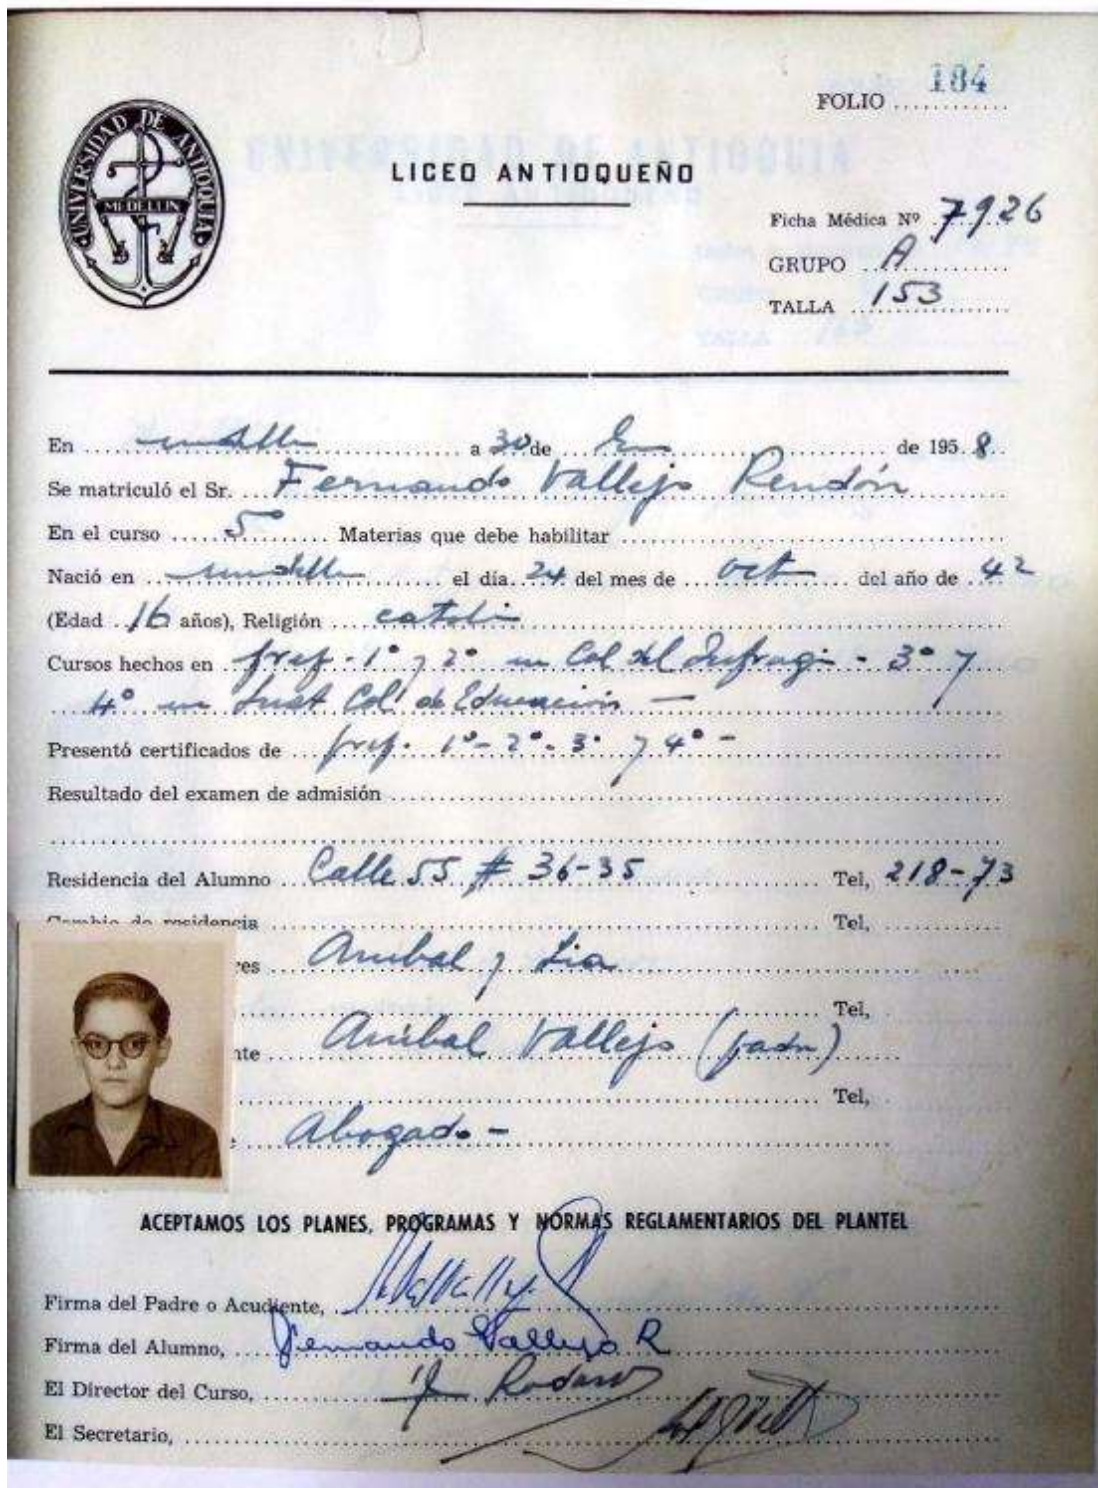 184
FOLIO ............
UNIVERSIDAD DE ANTIOQUIA
MEDELLIN
LICEO ANTIOQUEÑO
Ficha Médica Nº 7926
GRUPO A
TALLA 153
En Medellín a 30 de En de 1958
Se matriculó el Sr. Fernando Vallejo Rendón
En el curso 5º Materias que debe habilitar
Nació en Medellín el día 24 del mes de oct del año de 42
(Edad 16 años), Religión catoli
Cursos hechos en pref - 1º y 2º en Col del Sufragi - 3º y
4º en Inst Col de Educación -
Presentó certificados de pref. 1º - 2º. 3º y 4º -
Resultado del examen de admisión
Residencia del Alumno Calle 55 # 36-35 Tel, 218-73
Cambio de residencia Tel,
res Anibal y Lia
Tel,
nte Anibal Vallejo (padre)
Tel,
Abogado -
ACEPTAMOS LOS PLANES, PROGRAMAS Y NORMAS REGLAMENTARIOS DEL PLANTEL
Firma del Padre o Acudiente,
Firma del Alumno, Fernando Vallejo R
El Director del Curso,
El Secretario,